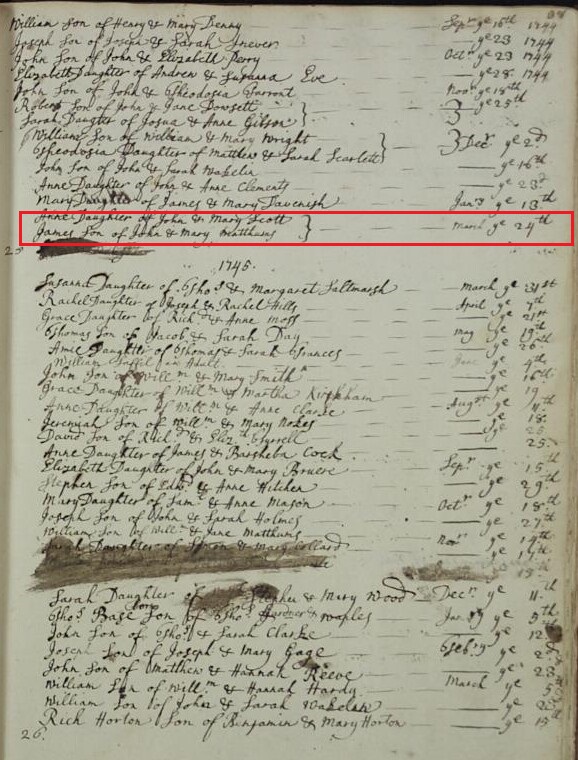 William Son of Henry & Mary Denny — Sepr ye 16th 1744
Joseph Son of Joseph & Sarah — ye 23 1744
John Son of John & Elizabeth Perry — Octr ye 23 1744
Elizabeth Daughter of Andrew & Susanna Eve — ye 28 1744
John Son of John & Theodosia — Novr ye 18th
Robert Son of John & Jane Dowsett } ye 25th
Sarah Daughter of Josua & Anne Gibson }
William Son of William & Mary Wright } Decr ye 2d
Theodosia Daughter of Matthew & Sarah Scarlett }
John Son of John & Sarah Wakelin — ye 16th
Anne Daughter of John & Anne Clements — ye 23d
Mary Daughter of James & Mary Tavenish — Jany ye 13th
Anne Daughter of John & Mary Scott } March ye 24th
James Son of John & Mary Matthums }
25
1745.
Susanna Daughter of Thos & Margaret Saltmarsh — March ye 31st
Rachel Daughter of Joseph & Rachel Hills — April ye 7th
Grace Daughter of Richd & Anne Moss — ye 21st
Thomas Son of Jacob & Sarah Day — May ye 19th
Amie Daughter of Thomas & Sarah — ye 26
William an Adult — June ye 9th
John Son of Willm & Mary Smith — ye 16th
Grace Daughter of Willm & Martha Kirkham — ye 19
Anne Daughter of Willm & Anne Clarke — Augst ye 11th
Jeremiah Son of Willm & Mary Nokes — ye 18
David Son of Richd & Eliz Tyrrell — 25
Anne Daughter of James & Barsheba Cock
Elizabeth Daughter of John & Mary Bruere — Sepr ye 15th
Stephen Son of Edwd & Anne Hitchen — ye 29th
Mary Daughter of Saml & Anne Mason — Octr ye 18th
Joseph Son of John & Sarah Holmes — ye 27th
William Son of Willm & Jane Matthums — Novr ye 14th
Sarah Daughter of & Mary Collard
Sarah Daughter of Stephen & Mary Wood — Decr ye 11th
Thos Base Son of Thos Gardner & Waples — Jany ye 5th
John Son of Thos & Sarah Clarke — ye 12
Joseph Son of Joseph & Mary Gage — Feby ye 2d
John Son of Matthew & Hannah Reeve — ye 23
William Son of Willm & Hannah Hardy — March ye 5
William Son of John & Sarah Wakelin — ye
Rich Horton Son of Benjamin & Mary Horton — ye 19th
26